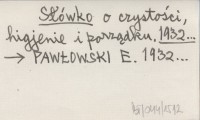 Słówko o czystości,
higjenie i porządku, 1932...
→ PAWŁOWSKI E. 1932...